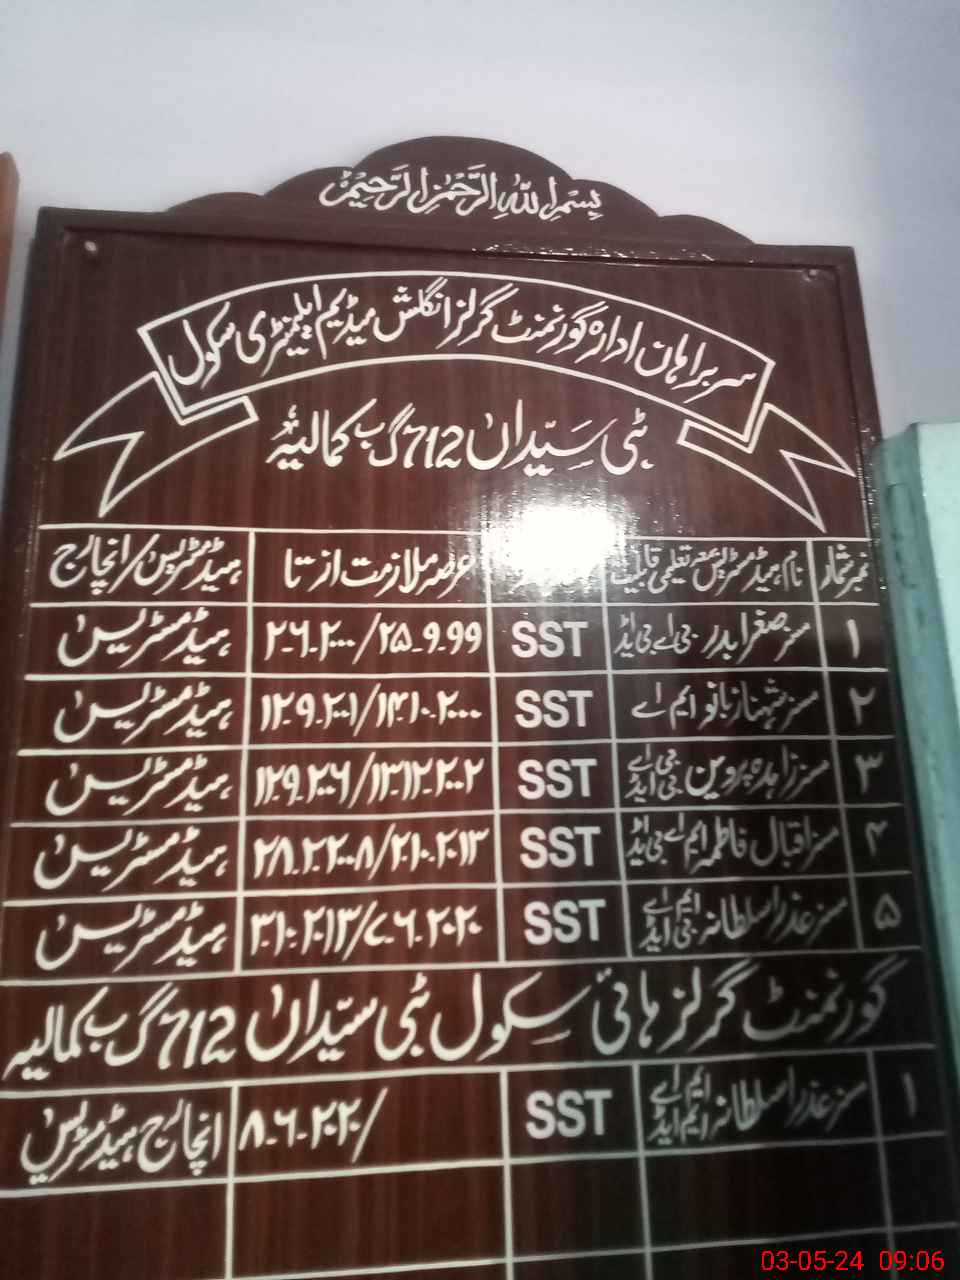 بِسْمِ اللّٰہِ الرَّحْمٰنِ الرَّحِیْمِ
سربراہان ادارہ گورنمنٹ گرلز انگلش میڈیم ایلیمنٹری سکول
ٹبی سیّداں 712 گ ب کمالیہ
نمبر شمار نام ہیڈ مسٹریس بمعہ تعلیمی قابلیت عرصہ ملازمت از تا ہیڈ مسٹریس/انچارج
۱ مسز صغرا بدر بی اے بی ایڈ SST ۲۵.۹.۹۹/۲.۶.۲۰۰۰ ہیڈ مسٹریس
۲ مسز شہناز بانو ایم اے SST ۱۴.۱۰.۲۰۰۰/۱۲.۹.۲۰۰۱ ہیڈ مسٹریس
۳ مسز زاہدہ پروین بی اے بی ایڈ SST ۱۳.۱۲.۲۰۰۲/۱۲.۹.۲۰۰۶ ہیڈ مسٹریس
۴ مسز اقبال فاطمہ ایم اے بی ایڈ SST ۲۸.۲.۲۰۰۸/۲.۱۰.۲۰۱۳ ہیڈ مسٹریس
۵ مسز عذرا سلطانہ ایم اے بی ایڈ SST ۳.۱۰.۲۰۱۳/۷.۶.۲۰۲۰ ہیڈ مسٹریس
گورنمنٹ گرلز ہائی سکول ٹبی سیّداں 712 گ ب کمالیہ
۱ مسز عذرا سلطانہ ایم اے ایم ایڈ SST ۸.۶.۲۰۲۰/ انچارج ہیڈ مسٹریس
03-05-24 09:06